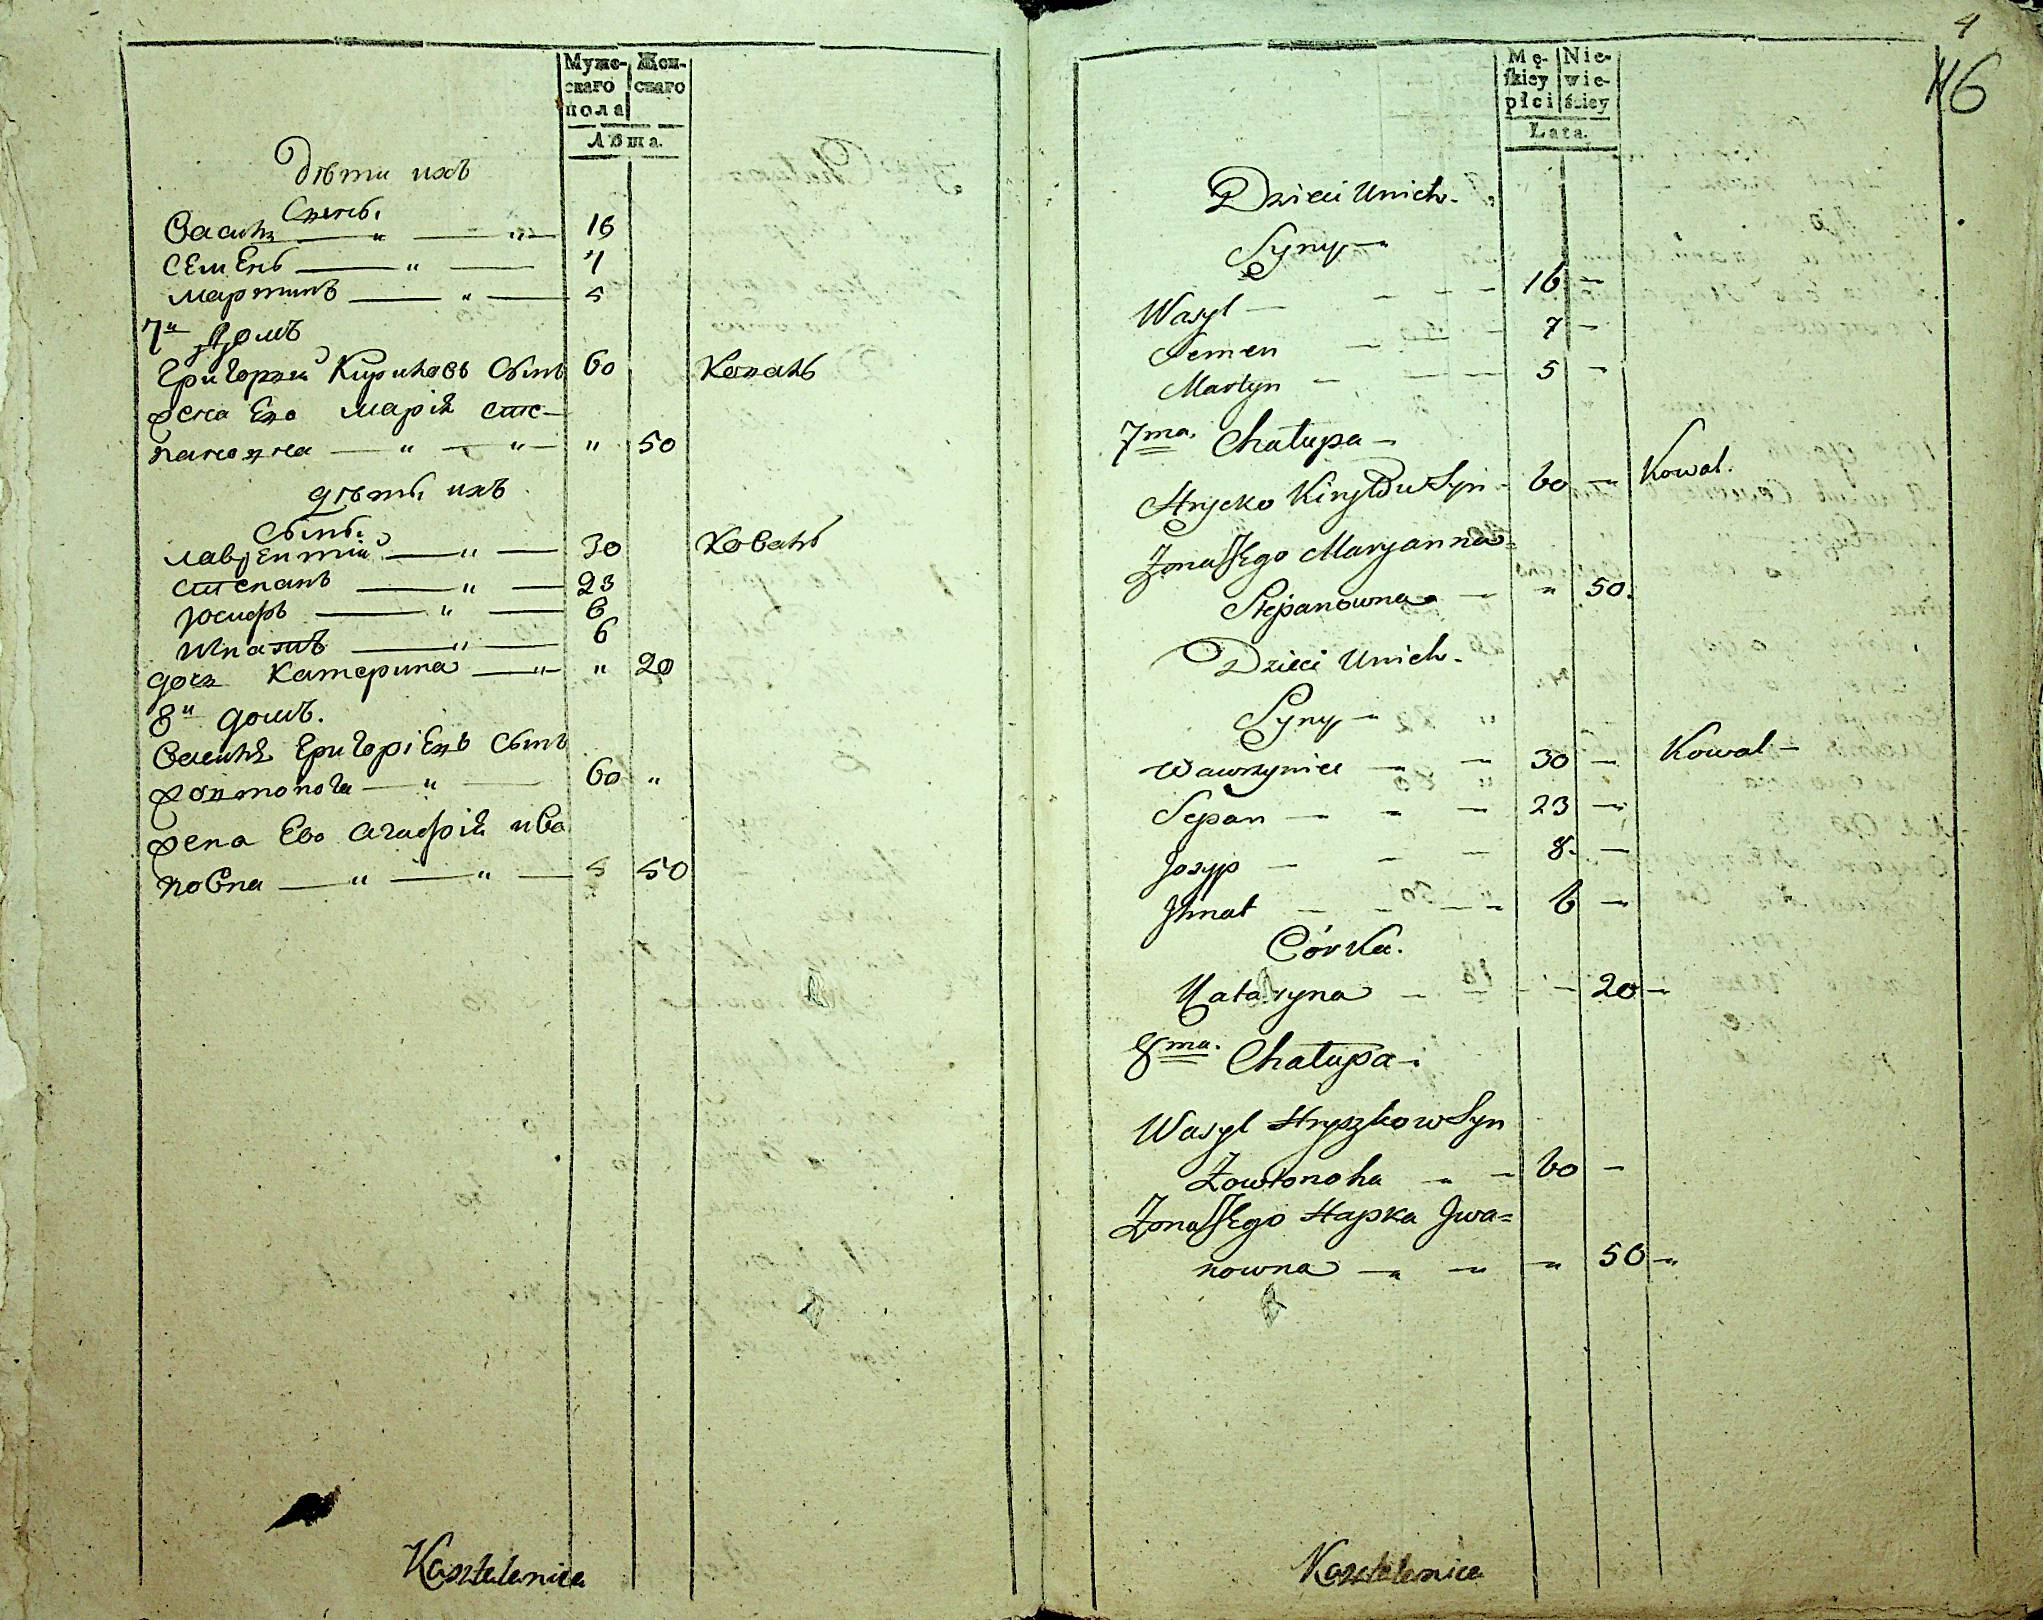 Муже-
скаго
пола
Жен-
скаго
Лѣта.
Дѣти ихъ
Сыны
Василь — „ — „ — 16
Семенъ — „ — 7
Мартинъ — „ — 5
7й Домъ
Григорей Кириловъ Сынъ 60 Коваль
жена Его Марія Сте-
пановна — „ — „ — „ 50
дѣти ихъ
Сыны
Лаврентий — „ — 30 Коваль
Степанъ — „ — 23
Юсифъ — „ — 8
Игнатъ — „ — 6
дочь Катерина — „ — „ 20
8й домъ.
Василь Григоріевъ Сынъ
Жовтонога — „ — 60 „
жена Ево Агафія Ива
новна — „ — „ — 50
Kasztelanice
4
46
Mę-
skiey
płci
Nie-
wie-
ściey
Lata.
Dzieci Unich.
Syny —
Wasyl — - - - 16 —
Semen — — - 7 —
Martyn — — - 5 —
7ma. Chałupa —
Hrycko Kiryłow Syn - 60 — Kowal.
Zona Jego Maryanna=
Stepanowna — „ 50.
Dzieci Unich.
Syny —
Wawrzyniec — — 30 — Kowal —
Stepan — - — 23 —
Jozyp — - — 8. —
Ihnat — - — - 6 —
Córka.
Kataryna — — - - 20 —
8ma. Chałupa —
Wasyl Hryszkow Syn
Zowtonoha „ — 60 —
Zona Jego Hapka Jwa=
nowna — „ — „ — „ 50 — „
Kasztelanice